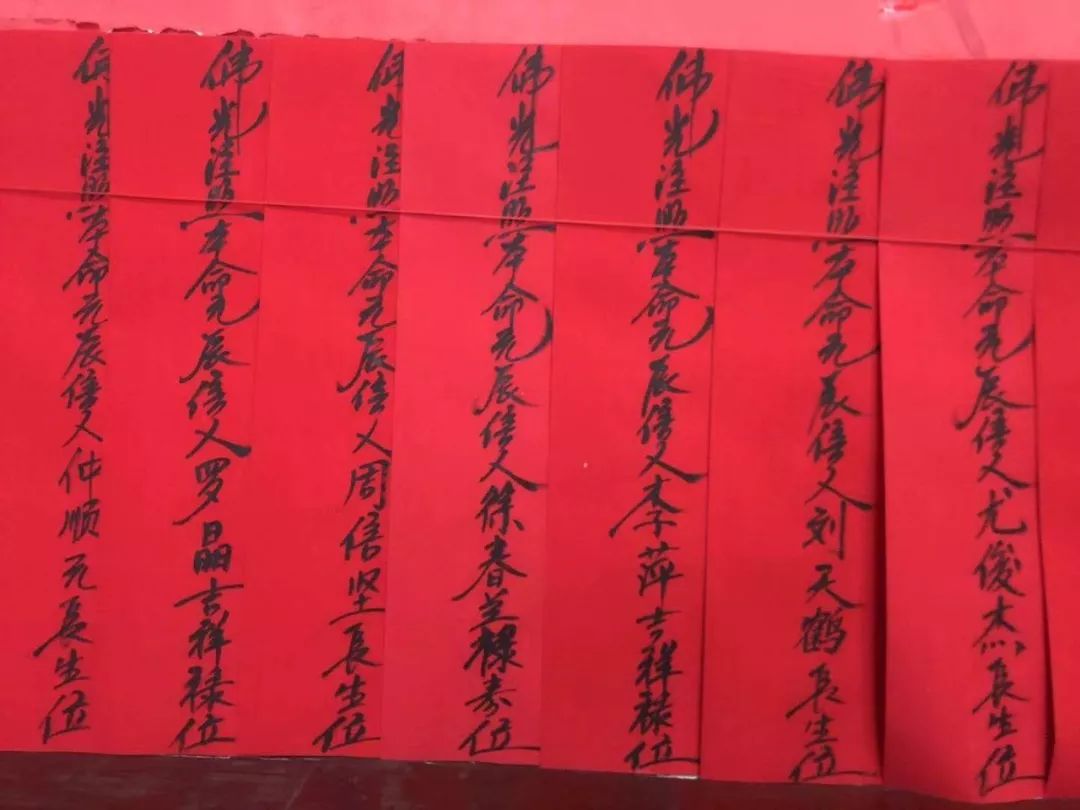 佛光注照本命元辰信人尤俊杰長生位
佛光注照本命元辰信人刘天鹤長生位
佛光注照本命元辰信人李萍吉祥禄位
佛光注照本命元辰信人徐春兰禄寿位
佛光注照本命元辰信人周信坚長生位
佛光注照本命元辰信人罗晶吉祥禄位
佛光注照本命元辰信人仲顺元長生位